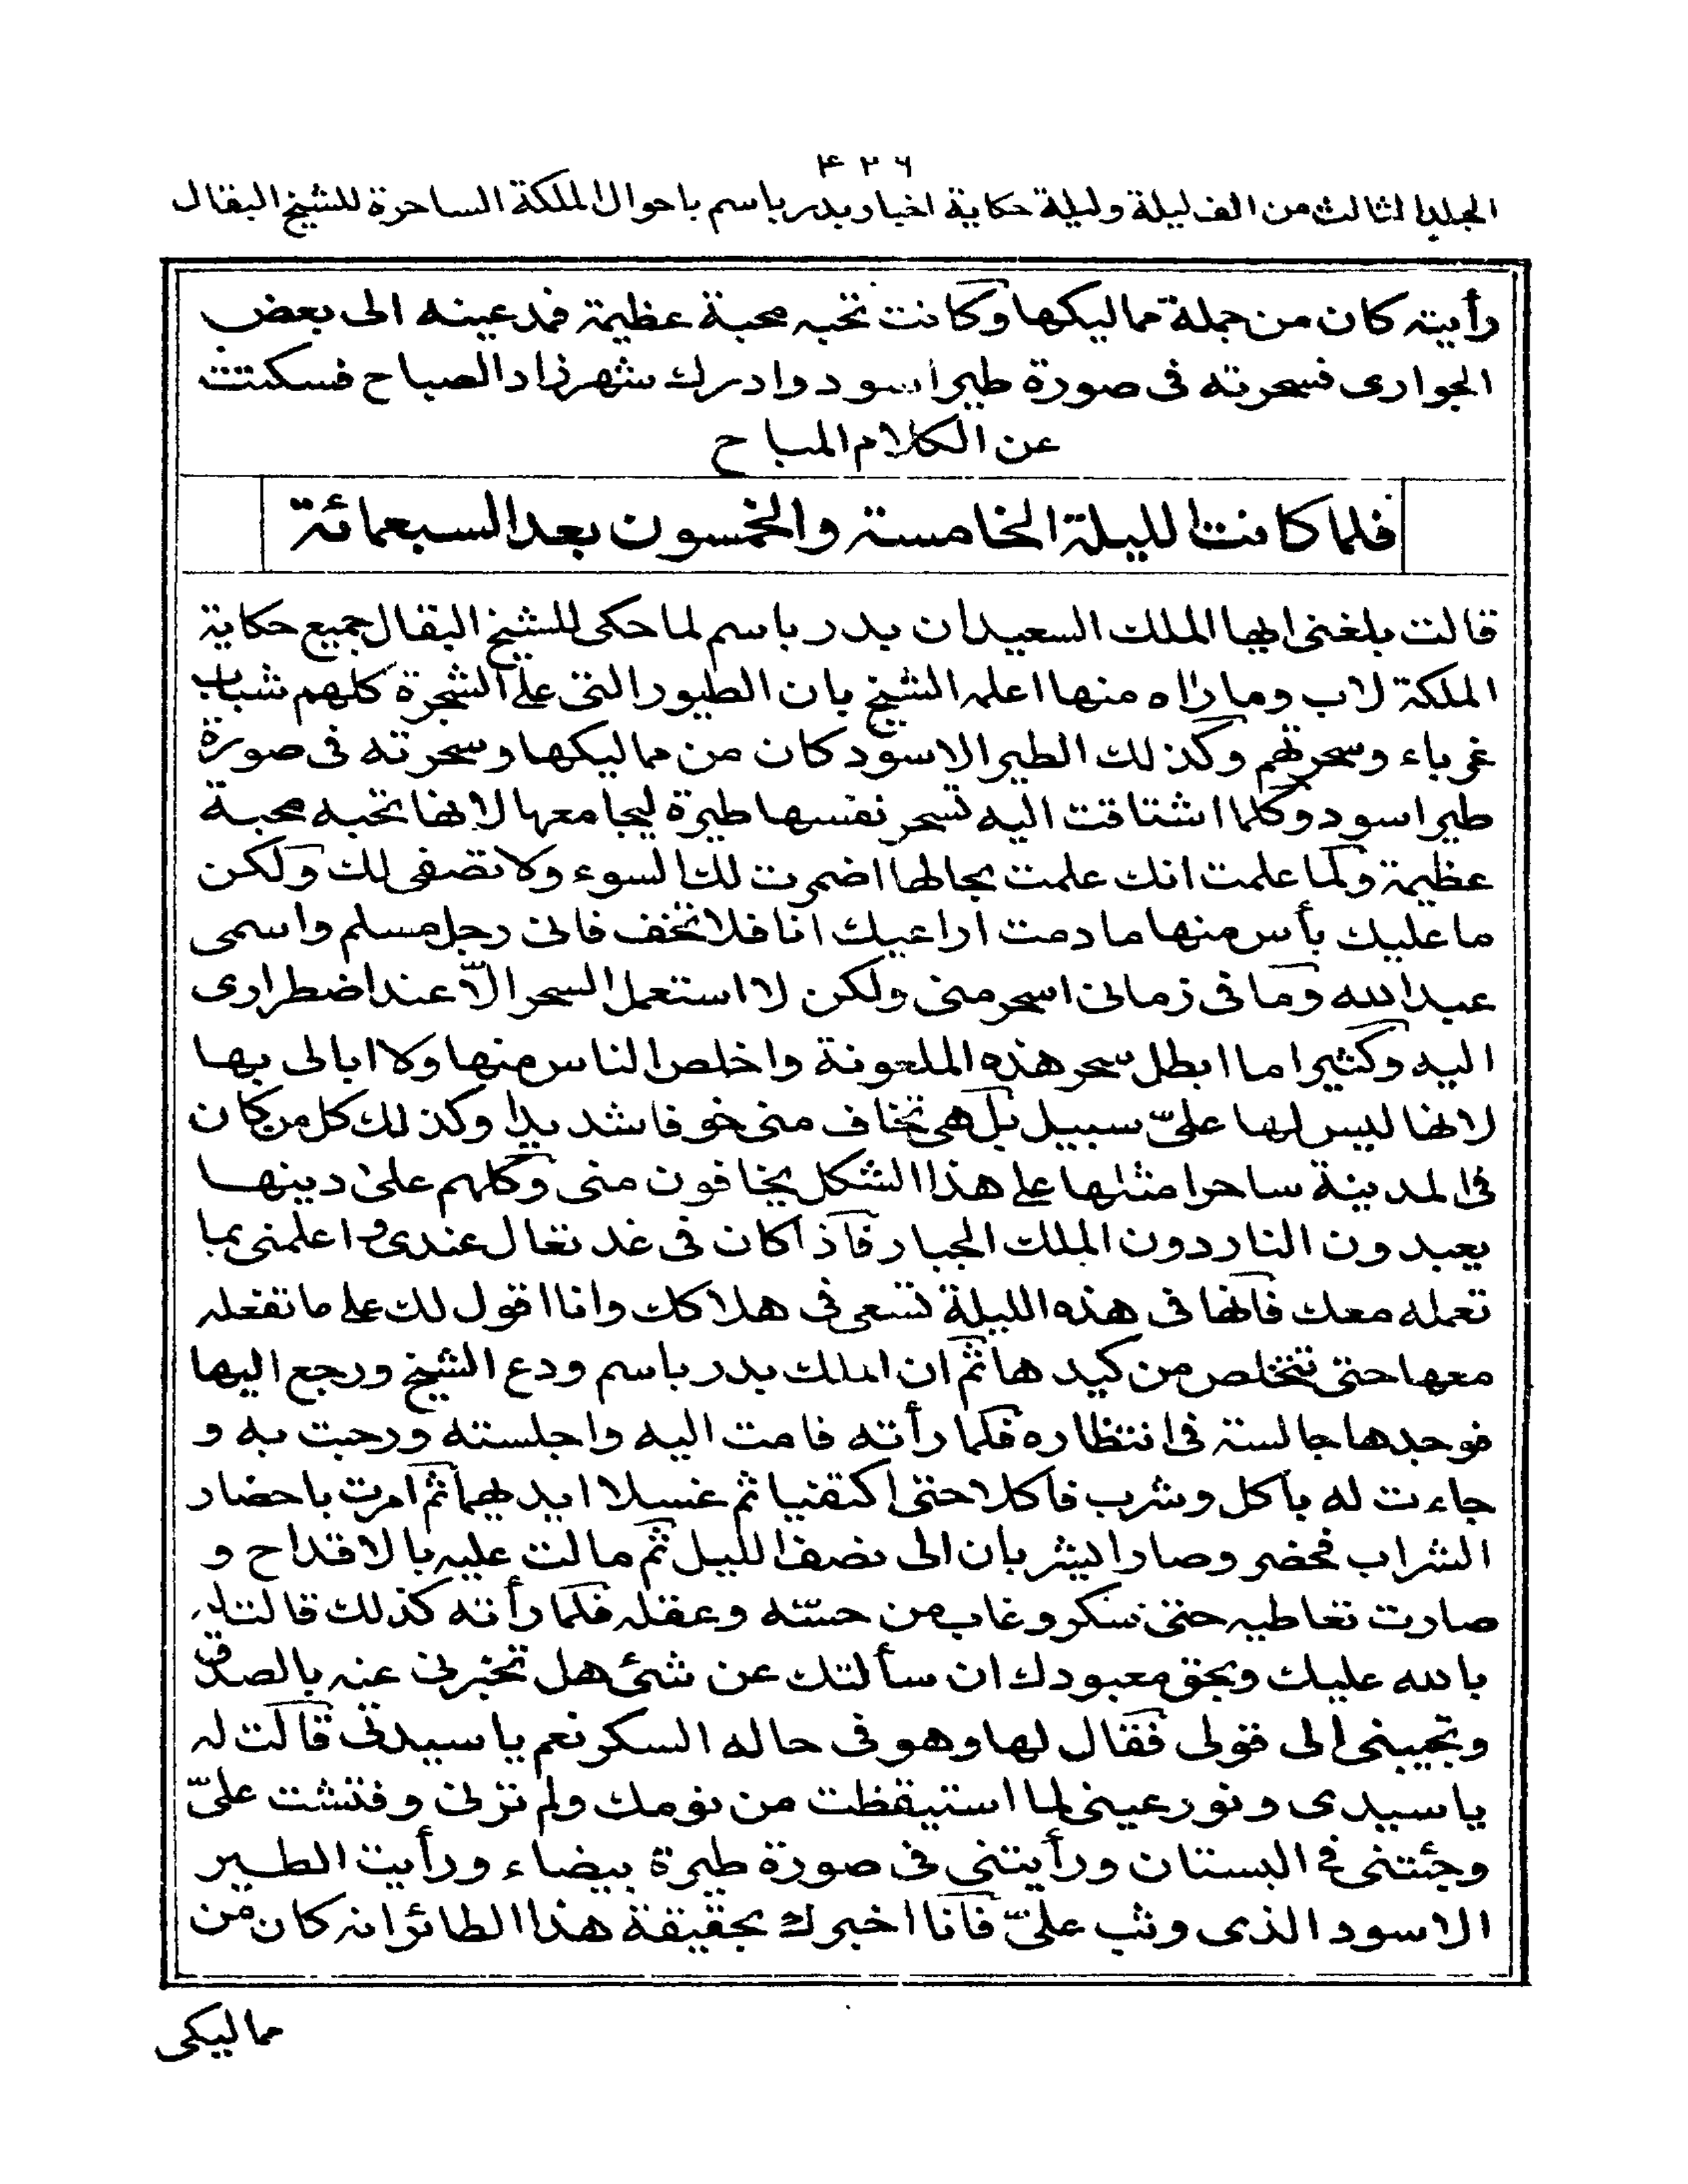 ۴۲۶
الجلد الثالث من الف ليلة وليلة حكاية اخبار بدر باسم باحوال الملكة الساحرة للشيخ البقال
رأيته كان من جملة مماليكها وكانت تحبه محبة عظيمة فمد عينه الى بعض
الجوارى فسحرته فى صورة طير اسود وادرك شهرزاد الصباح فسكتت
عن الكلام المباح
فلما كانت الليلة الخامسة والخمسون بعد السبعمائة
قالت بلغنى ايها الملك السعيد ان بدر باسم لما حكى للشيخ البقال جميع حكاية
الملكة لاب وما رأه منها اعلمه الشيخ بان الطيور التى على الشجرة كلهم شباب
غرباء وسحرتهم وكذلك الطير الاسود كان من مماليكها وسحرته فى صورة
طير اسود وكلما اشتاقت اليه تسحر نفسها طيرة ليجامعها لانها تحبه محبة
عظيمة ولما علمت انك علمت بحالها اضمرت لك السوء ولا تصفى لك ولكن
ما عليك بأس منها ما دمت اراعيك انا فلا تخف فانى رجل مسلم واسمى
عبد الله وما فى زمانى اسحر منى ولكن لا استعمل السحر الّا عند اضطرارى
اليه وكثيرا ما ابطل سحر هذه الملعونة واخلص الناس منها ولا ابالى بها
لانها ليس لها علىّ سبيل بل هى تخاف منى خوفا شديدا وكذلك كل من كان
فى المدينة ساحرا مثلها على هذا الشكل يخافون منى وكلهم على دينها
يعبدون النار دون الملك الجبار فاذا كان فى غد تعال عندى واعلمنى بما
تعمله معك فانها فى هذه الليلة تسعى فى هلاكك وانا اقول لك على ما تفعله
معها حتى تتخلص من كيدها ثم ان الملك بدر باسم ودع الشيخ ورجع اليها
فوجدها جالسة فى انتظاره فلما رأته قامت اليه واجلسته ورحبت به و
جاءت له باكل وشرب فاكلا حتى اكتفيا ثم غسلا ايديهما ثم امرت باحضار
الشراب فحضر وصارا يشربان الى نصف الليل ثم مالت عليه بالاقداح و
صارت تعاطيه حتى سكر وغاب من حسّه وعقله فلما رأته كذلك قالت له
بالله عليك وبحق معبودك ان سألتك عن شئ هل تخبرنى عنه بالصدق
وتجيبنى الى قولى فقال لها وهو فى حاله السكر نعم يا سيدتى قالت له
يا سيدى ونور عينى لما استيقظت من نومك ولم ترنى وفتشت علىّ
وجئتنى فى البستان ورأيتنى فى صورة طيرة بيضاء ورأيت الطير
الاسود الذى وثب علىّ فانا اخبرك بحقيقة هذا الطائر انه كان من
مماليكى